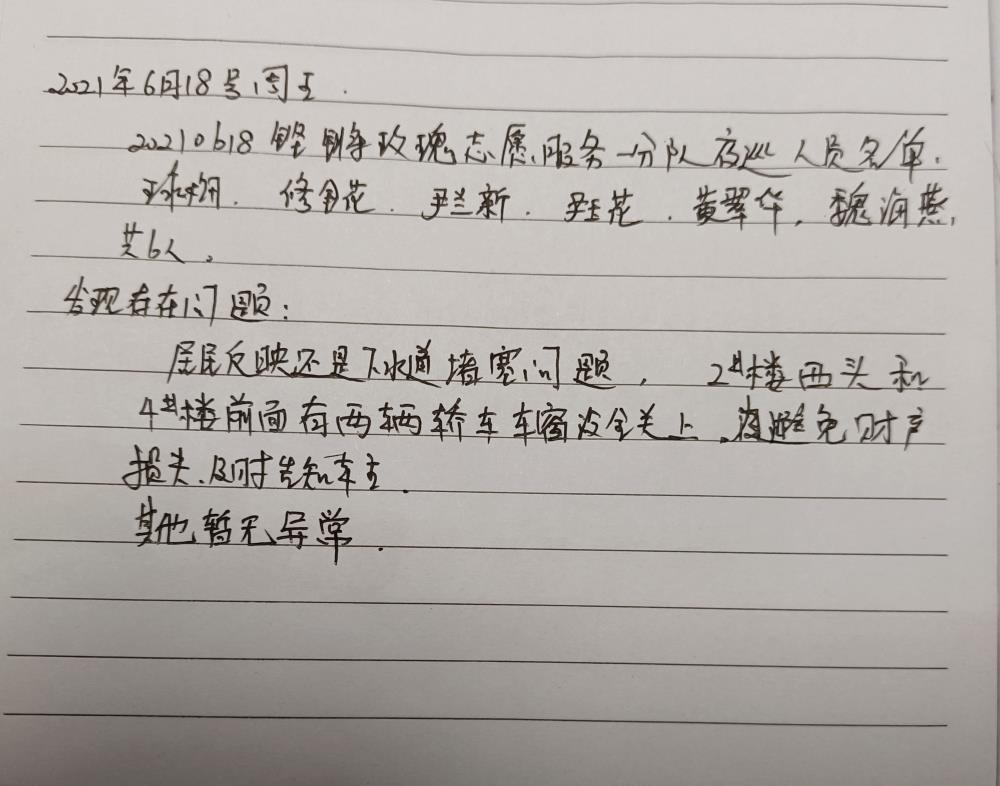 2021年6月18号周五.
20210618铿锵玫瑰志愿服务一分队夜巡人员名单.
修金花. 尹兰新. 尹玉花. 黄翠华. 魏海燕,
共6人。
发现存在问题:
居民反映还是下水道堵塞问题, 2#楼西头和
4#楼前面有两辆轿车车窗没全关上, 避免财产
损失.及时告知车主.
其他暂无异常.